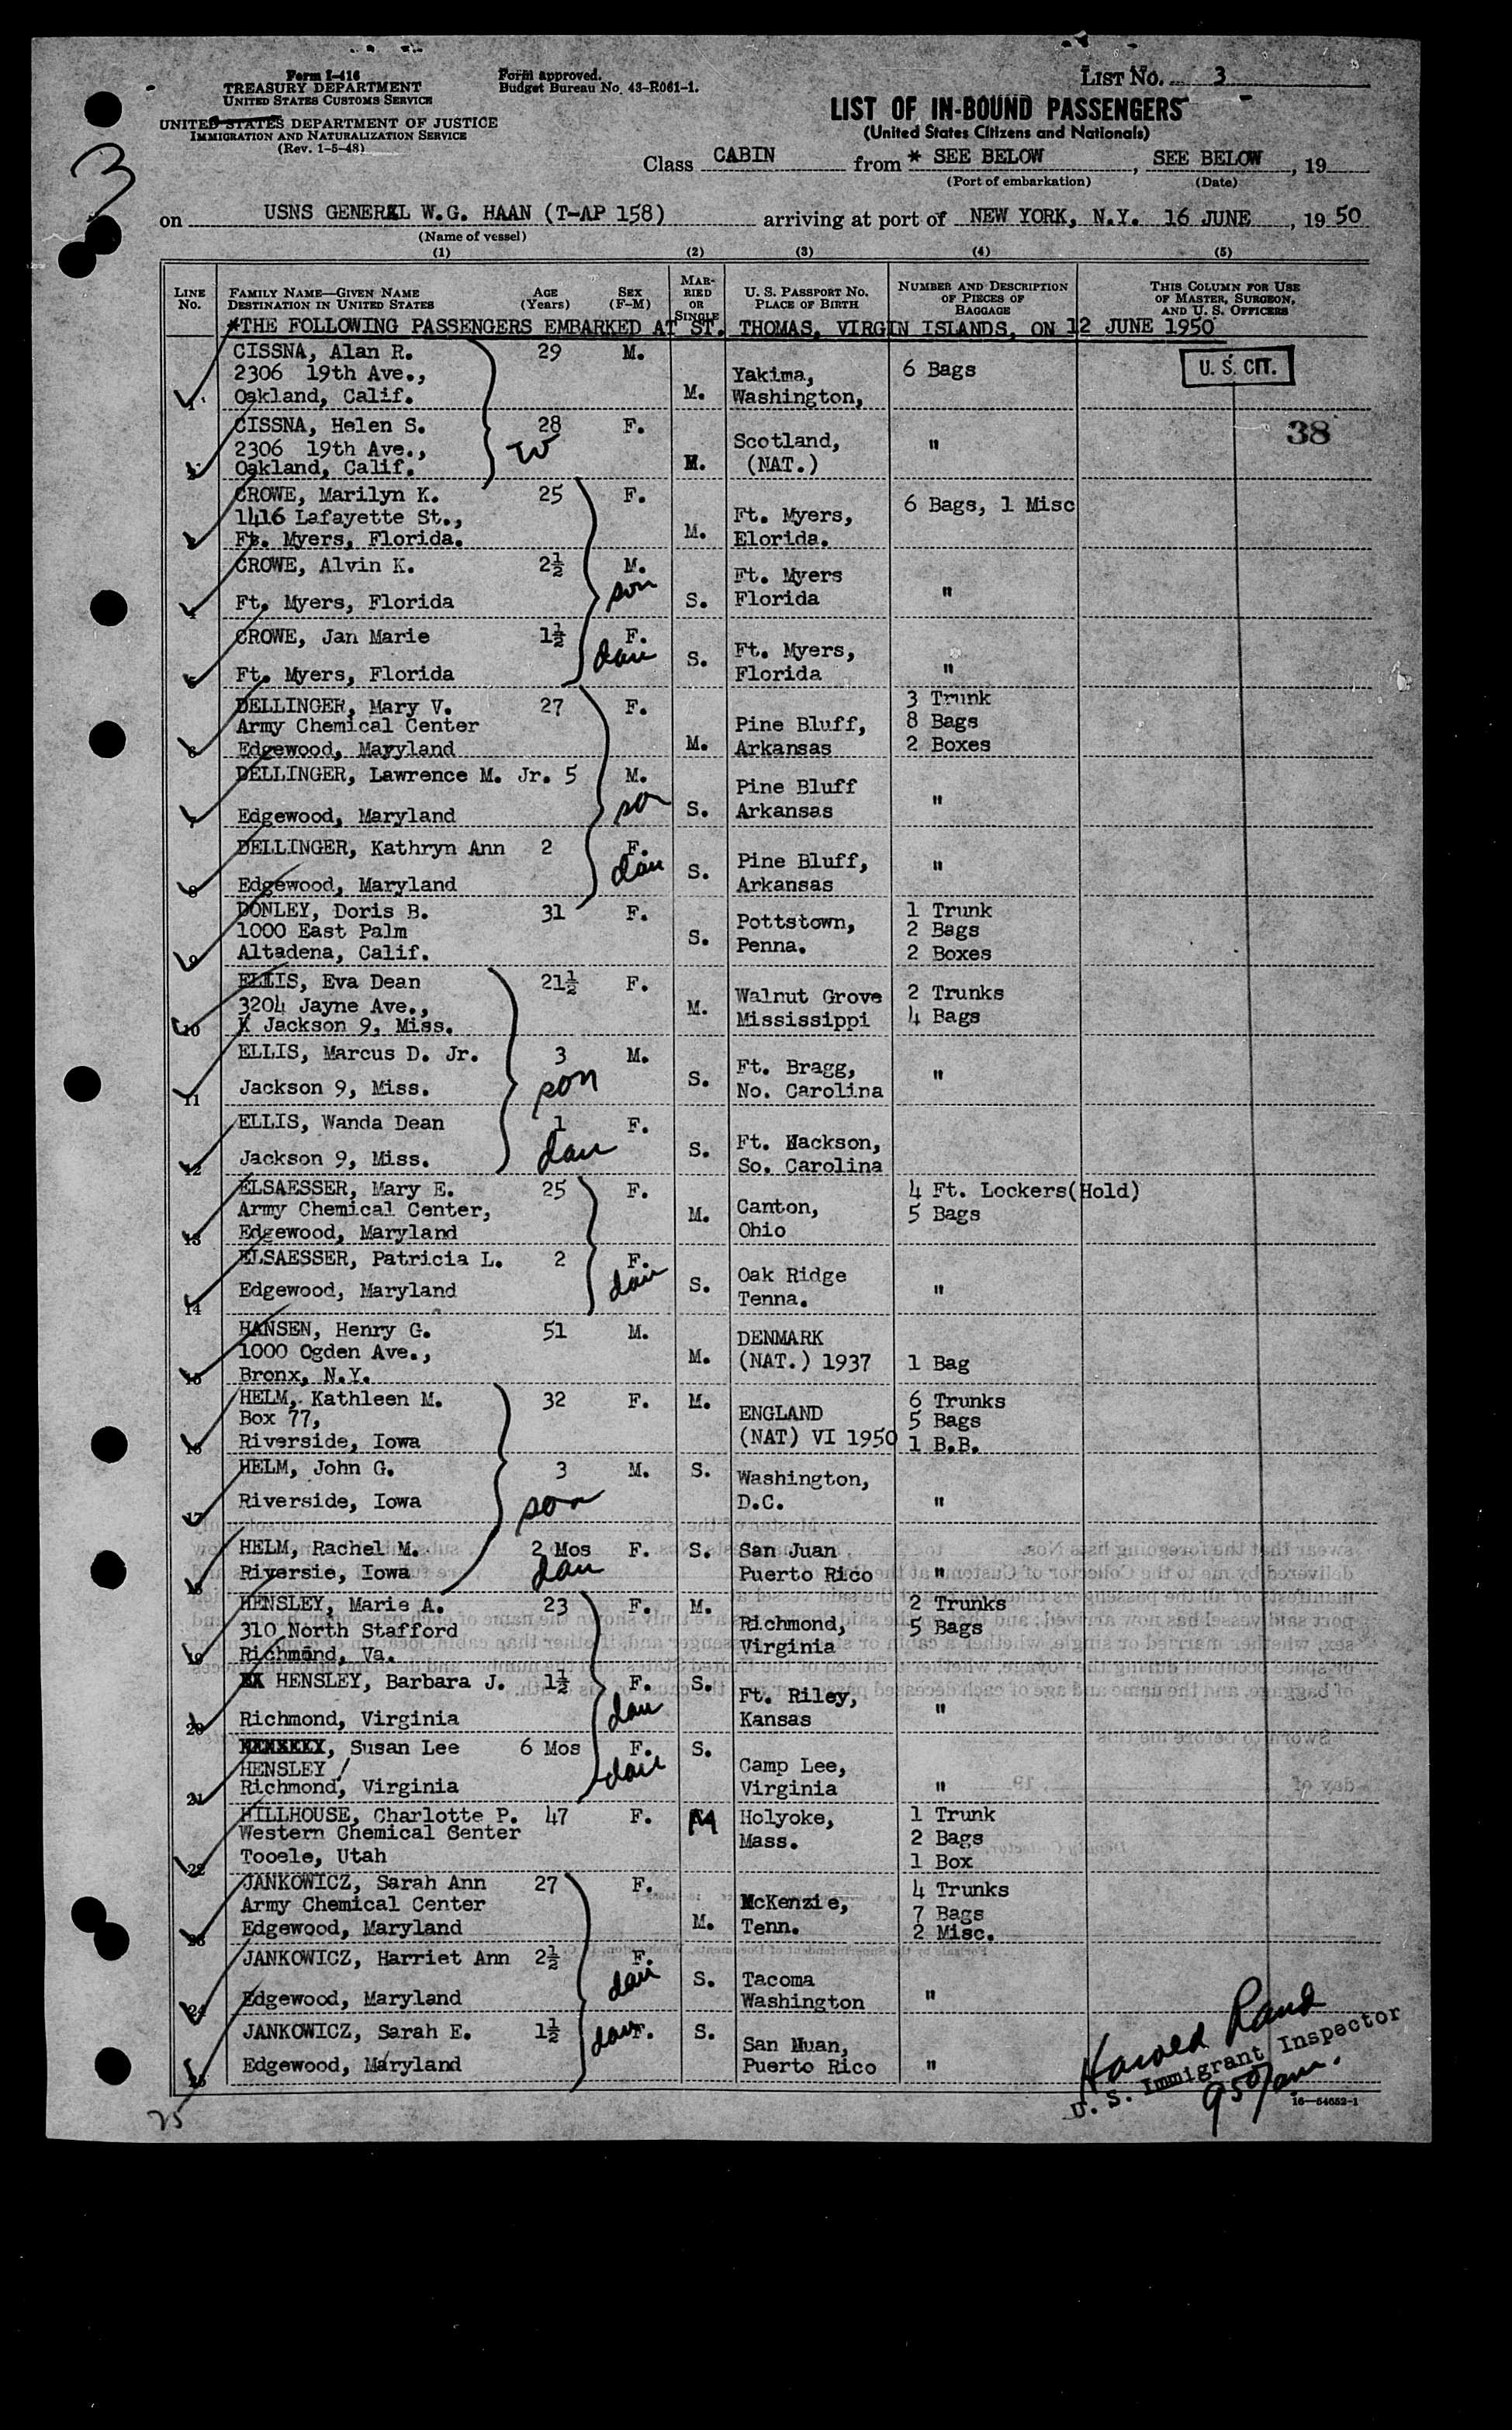 Form I-416
TREASURY DEPARTMENT
UNITED STATES CUSTOMS SERVICE
UNITED STATES DEPARTMENT OF JUSTICE
IMMIGRATION AND NATURALIZATION SERVICE
(Rev. 1-5-48)
Form approved.
Budget Bureau No. 43-R061-1.
LIST No. 3
LIST OF IN-BOUND PASSENGERS
(United States Citizens and Nationals)
3
Class CABIN from * SEE BELOW, SEE BELOW, 19
(Port of embarkation) (Date)
on USNS GENERAL W.G. HAAN (T-AP 158) arriving at port of NEW YORK, N.Y. 16 JUNE, 19 50
(Name of vessel)
(1) (2) (3) (4) (5)
LINE No. FAMILY NAME—GIVEN NAME DESTINATION IN UNITED STATES AGE (Years) SEX (F-M) MARRIED OR SINGLE U. S. PASSPORT No. PLACE OF BIRTH NUMBER AND DESCRIPTION OF PIECES OF BAGGAGE THIS COLUMN FOR USE OF MASTER, SURGEON, AND U. S. OFFICERS
*THE FOLLOWING PASSENGERS EMBARKED AT ST. THOMAS, VIRGIN ISLANDS, ON 12 JUNE 1950
CISSNA, Alan R. 29 M.
2306 19th Ave., Yakima, 6 Bags U. S. CIT.
1 Oakland, Calif. M. Washington,
CISSNA, Helen S. 28 F. 38
2306 19th Ave., W Scotland, "
2 Oakland, Calif. M. (NAT.)
CROWE, Marilyn K. 25 F. 6 Bags, 1 Misc
1416 Lafayette St., Ft. Myers,
3 Ft. Myers, Florida. M. Elorida.
CROWE, Alvin K. 2½ M. Ft. Myers
4 Ft. Myers, Florida son S. Florida "
CROWE, Jan Marie 1½ F. Ft. Myers,
5 Ft. Myers, Florida dau S. Florida "
DELLINGER, Mary V. 27 F. 3 Trunk
Army Chemical Center Pine Bluff, 8 Bags
6 Edgewood, Maryland M. Arkansas 2 Boxes
DELLINGER, Lawrence M. Jr. 5 M. Pine Bluff
7 Edgewood, Maryland son S. Arkansas "
DELLINGER, Kathryn Ann 2 F. Pine Bluff, "
8 Edgewood, Maryland dau S. Arkansas
DONLEY, Doris B. 31 F. Pottstown, 1 Trunk
1000 East Palm S. Penna. 2 Bags
9 Altadena, Calif. 2 Boxes
ELLIS, Eva Dean 21½ F. Walnut Grove 2 Trunks
3204 Jayne Ave., M. Mississippi 4 Bags
10 X Jackson 9, Miss.
ELLIS, Marcus D. Jr. 3 M. Ft. Bragg,
11 Jackson 9, Miss. son S. No. Carolina "
ELLIS, Wanda Dean 1 F. Ft. Hackson,
12 Jackson 9, Miss. dau S. So. Carolina
ELSAESSER, Mary E. 25 F. 4 Ft. Lockers(Hold)
Army Chemical Center, M. Canton, 5 Bags
13 Edgewood, Maryland Ohio
ELSAESSER, Patricia L. 2 F. Oak Ridge
14 Edgewood, Maryland dau S. Tenna. "
HANSEN, Henry G. 51 M. DENMARK
1000 Ogden Ave., M. (NAT.) 1937 1 Bag
15 Bronx, N.Y.
HELM, Kathleen M. 32 F. M. 6 Trunks
Box 77, ENGLAND 5 Bags
16 Riverside, Iowa (NAT) VI 1950 1 B.B.
HELM, John G. 3 M. S. Washington,
17 Riverside, Iowa son D.C. "
HELM, Rachel M. 2 Mos F. S. San Juan
18 Riversie, Iowa dau Puerto Rico "
HENSLEY, Marie A. 23 F. M. 2 Trunks
310 North Stafford Richmond, 5 Bags
19 Richmond, Va. Virginia
HENSLEY, Barbara J. 1½ F. S. Ft. Riley,
20 Richmond, Virginia dau Kansas "
, Susan Lee 6 Mos F. S.
HENSLEY / dau Camp Lee,
21 Richmond, Virginia Virginia "
HILLHOUSE, Charlotte P. 47 F. M Holyoke, 1 Trunk
Western Chemical Center Mass. 2 Bags
22 Tooele, Utah 1 Box
JANKOWICZ, Sarah Ann 27 F. 4 Trunks
Army Chemical Center McKenzie, 7 Bags
23 Edgewood, Maryland M. Tenn. 2 Misc.
JANKOWICZ, Harriet Ann 2½ F. Tacoma
24 Edgewood, Maryland dau S. Washington "
JANKOWICZ, Sarah E. 1½ dau F. S. San Muan,
25 Edgewood, Maryland Puerto Rico "
Harold Rand
U. S. Immigrant Inspector
950 am.
25
16—54652-1